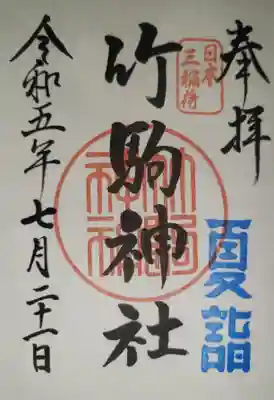 奉拝
日本
三稲荷
竹駒神社
竹駒
神社
夏詣
令和五年七月二十一日